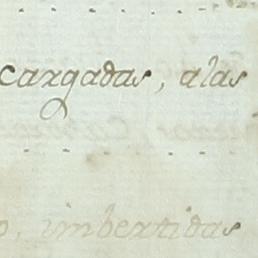 cargadas, alas
o, imbertidas